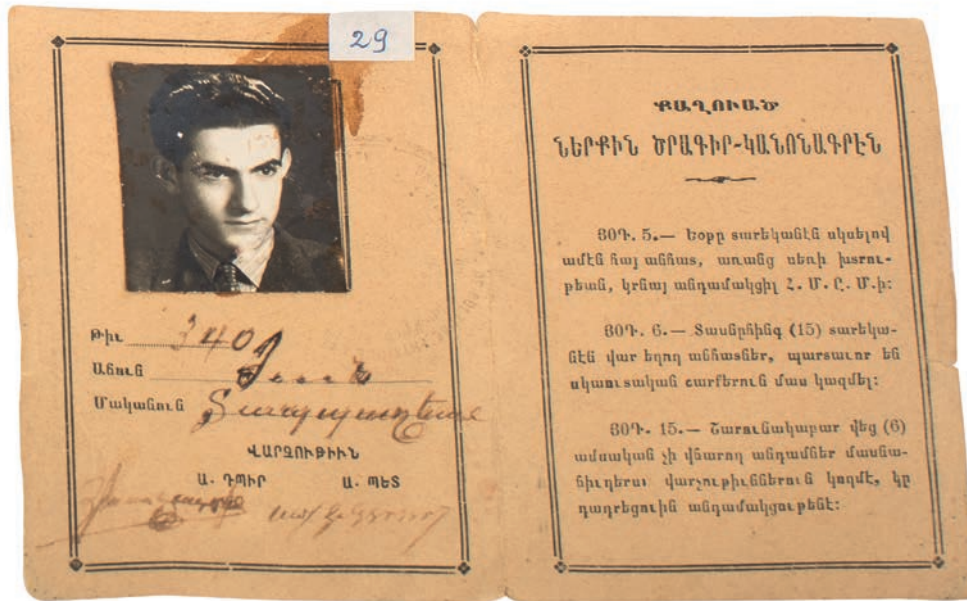 29
Թիւ 3401
Անուն
Մականուն
ՎԱՐՉՈՒԹԻՒՆ
Ա. ԴՊԻՐ Ա. ՊԵՏ
ՔԱՂՈՒԱԾ
ՆԵՐՔԻՆ ԾՐԱԳԻՐ-ԿԱՆՈՆԱԳՐԷՆ
ՅՕԴ. 5.— Եօթը տարեկանէն սկսելով
ամէն հայ անհատ, առանց սեռի խտրու-
թեան, կրնայ անդամակցիլ Հ. Մ. Ը. Մ.ի:
ՅՕԴ. 6.— Տասնըհինգ (15) տարեկա-
նէն վար եղող անհատներ, պարտաւոր են
սկաուտական շարքերուն մաս կազմել:
ՅՕԴ. 15.— Շարունակաբար վեց (6)
ամսական չի վճարող անդամներ մասնա-
ճիւղերու վարչութիւններուն կողմէ, կը
դադրեցուին անդամակցութենէ: